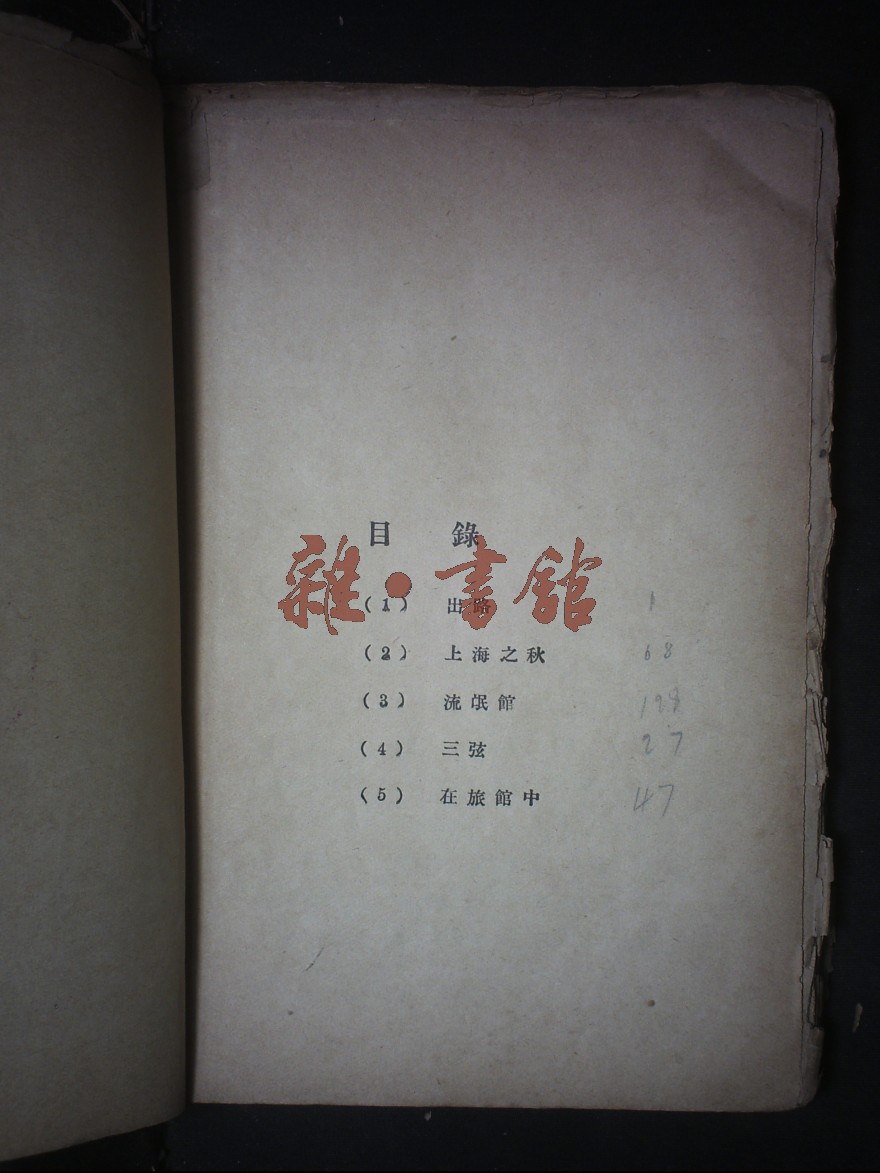 目 錄
雜·書館
(1) 出路 1
(2) 上海之秋 68
(3) 流氓館 198
(4) 三弦 27
(5) 在旅館中 47